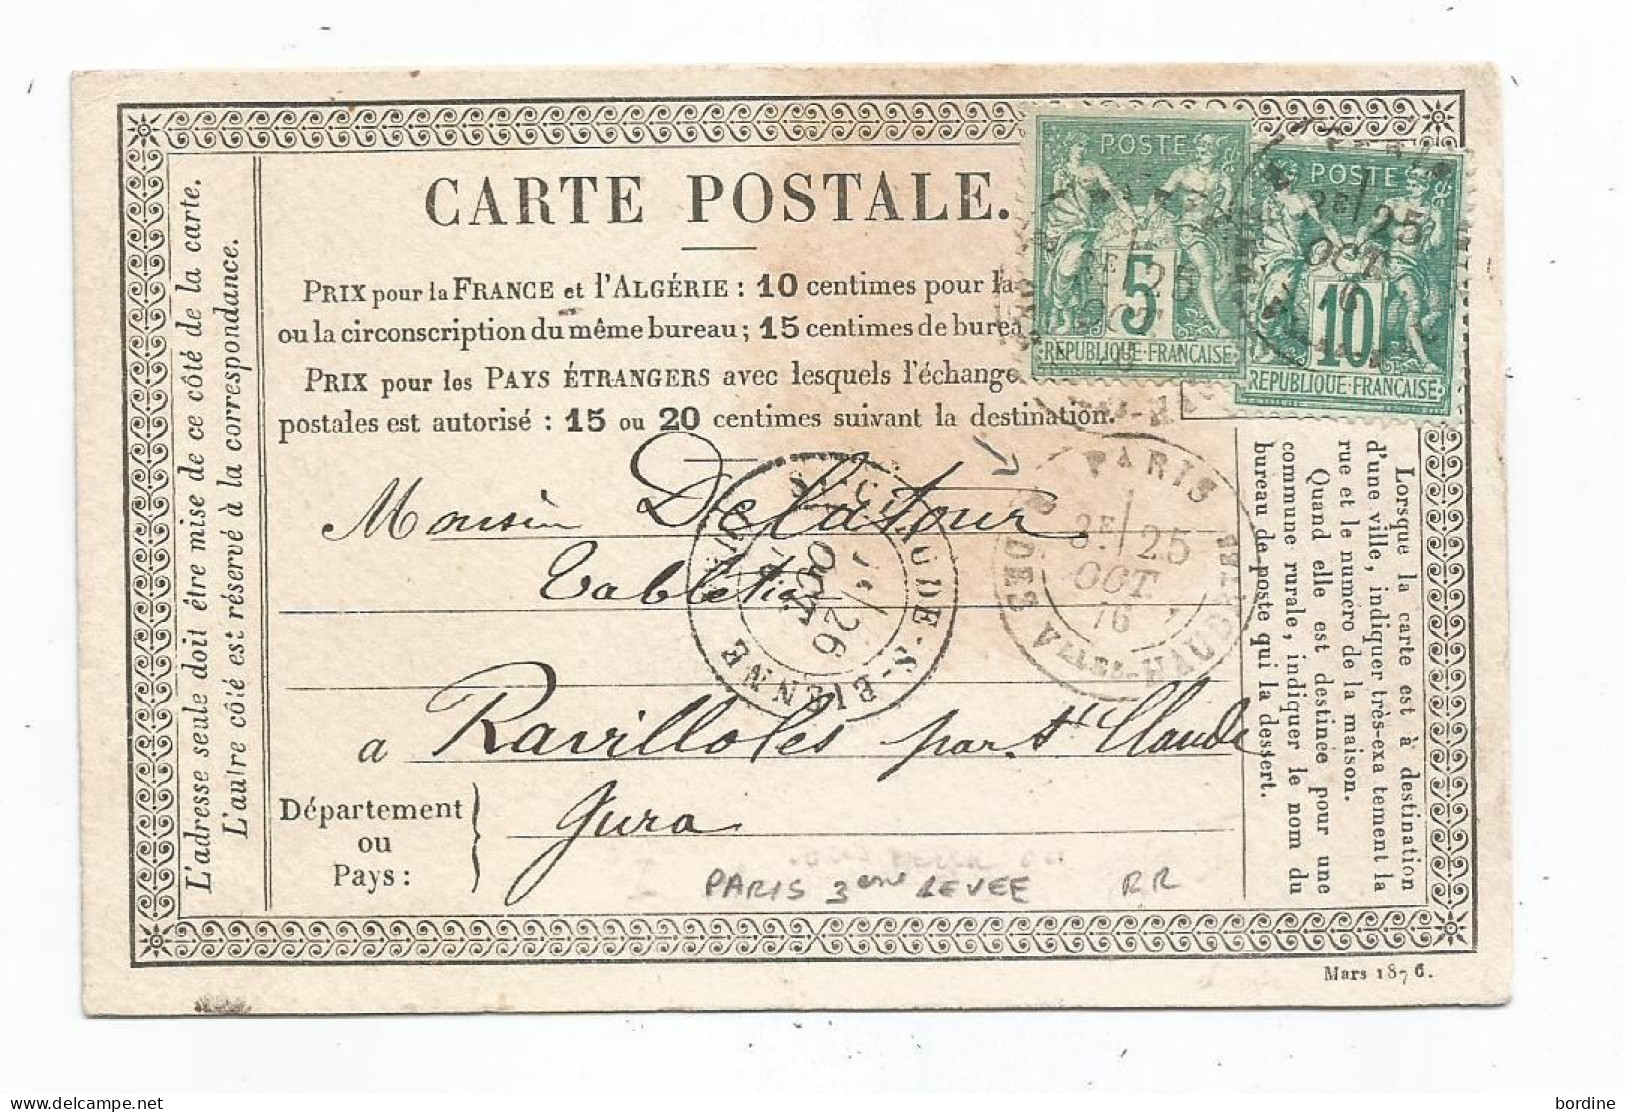 CARTE POSTALE.
PRIX pour la FRANCE et l'ALGÉRIE : 10 centimes pour la
ou la circonscription du même bureau; 15 centimes de burea
PRIX pour les PAYS ÉTRANGERS avec lesquels l'échange
postales est autorisé : 15 ou 20 centimes suivant la destination.
POSTE
5
REPUBLIQUE·FRANCAISE
POSTE
2E/25
OCT
10
REPUBLIQUE·FRANCAISE
L'adresse seule doit être mise de ce côté de la carte.
L'autre côté est réservé à la correspondance.
Monsieur Delatour
a Ravilloles par St Claude
Département
ou
Pays :
Jura
PARIS
3E/25
OCT.
76
26
OCT.
PARIS 3eme LEVEE RR
Lorsque la carte est à destination
d'une ville, indiquer très-exa tement la
rue et le numéro de la maison.
Quand elle est destinée pour une
commune rurale, indiquer le nom du
bureau de poste qui la dessert.
Mars 1876.
bordine